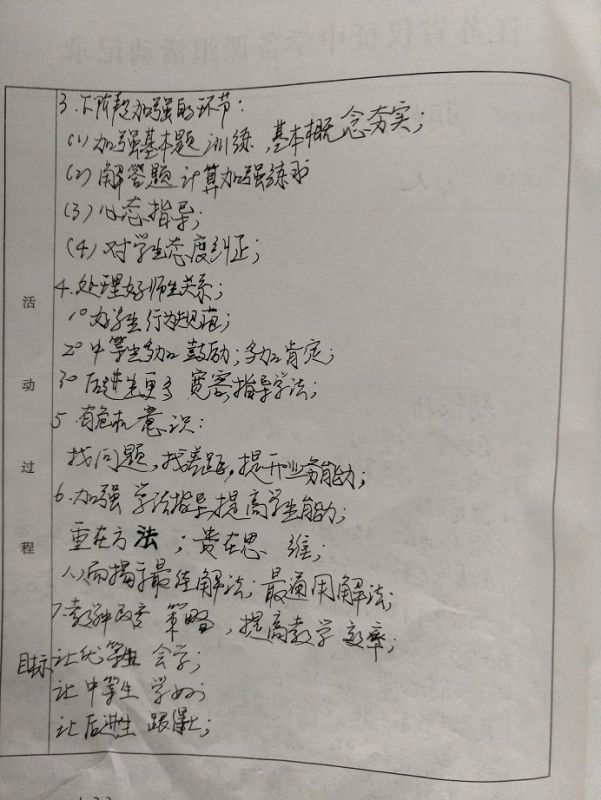 3.下阶段加强的环节:
(1)加强基本题训练,基本概念夯实;
(2)解答题计算加强练习
(3)心态指导;
(4)对学生态度纠正;
4.处理好师生关系;
1°为学生行为规范;
2°中等生多加鼓励;多加肯定;
3°后进生更多宽容指导学法;
5 有危机意识:
找问题,找差距,提升业务能力;
6.加强学法指导,提高学生能力;
重在方法;贵在思维;
从而揭示最佳解法,最通用解法;
7.教学改变策略,提高教学效率;
目标 让优等生会学;
让中等生学好;
让后进生跟得上;
活
动
过
程